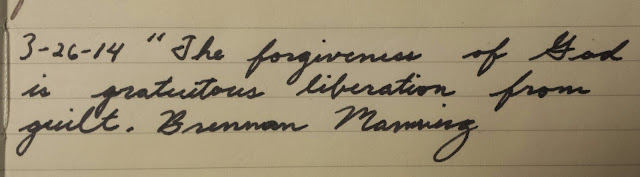 3-26-14 "The forgiveness of God
is gratuitous liberation from
guilt. Brennan Manning